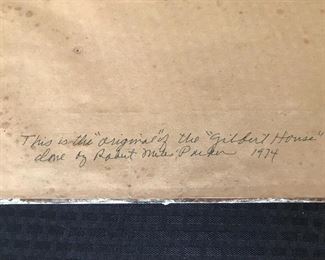 This is the "original" of the "Gilbert House"
done by Robert Miles Parker 1974